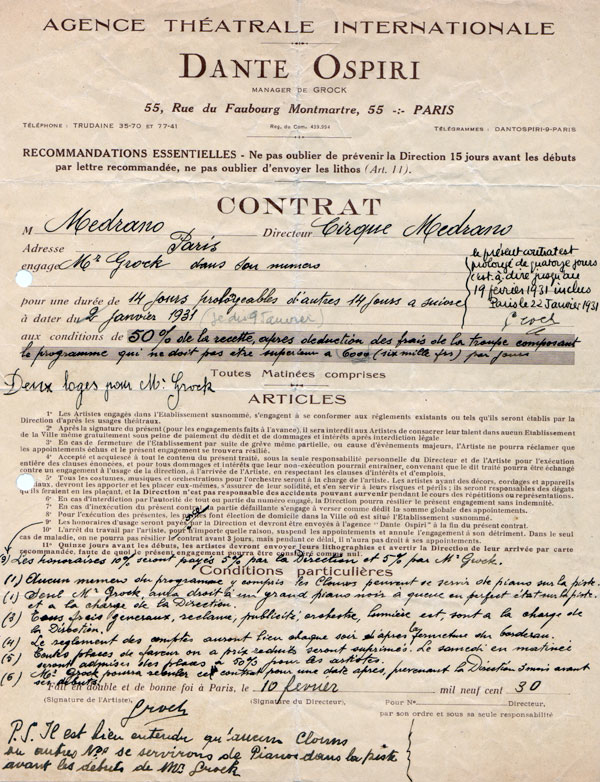 AGENCE THÉATRALE INTERNATIONALE
DANTE OSPIRI
MANAGER DE GROCK
55, Rue du Faubourg Montmartre, 55 -:- PARIS
TÉLÉPHONE : TRUDAINE 35-70 ET 77-41
Reg. du Com. 429.224
TÉLÉGRAMMES : DANTOSPIRI-9-PARIS
RECOMMANDATIONS ESSENTIELLES - Ne pas oublier de prévenir la Direction 15 jours avant les débuts
par lettre recommandée, ne pas oublier d'envoyer les lithos (Art. 11).
CONTRAT
M Medrano Directeur Cirque Medrano
Adresse Paris
engage Mr Grock dans son numero
le présent contrat est
prolongé de quatorze jours
c'est à dire jusqu'au
19 février 1931 inclus
Paris le 22 Janvier 1931
Grock
pour une durée de 14 jours proloyeables d'autres 14 jours a suivre
à dater du 2 janvier 1931
aux conditions de 50% de la recette, apres deduction des frais de la troupe composant
le programme qui ne doit pas etre superieur a 6000 (six mille frs) par jours
Toutes Matinées comprises
Deux loges pour Mr Grock
ARTICLES
1° Les Artistes engagés dans l'Etablissement susnommé, s'engagent à se conformer aux règlements existants ou tels qu'ils seront établis par la
Direction d'après les usages théâtraux.
2° Après la signature du présent (pour les engagements faits à l'avance), il sera interdit aux Artistes de consacrer leur talent dans aucun Etablissement
de la Ville même gratuitement sous peine de paiement du dédit et de dommages et intérêts après interdiction légale
3° En cas de fermeture de l'Etablissement par suite de grève même partielle, ou cause d'événements majeurs, l'Artiste ne pourra réclamer que
les appointements échus et le présent engagement se trouvera résilié.
4° Accepté et acquiescé à tout le contenu du présent traité, sous la seule responsabilité personnelle du Directeur et de l'Artiste pour l'exécution
entière des clauses énoncées, et pour tous dommages et intérêts que leur non-exécution pourrait entraîner, convenant que le dit traité pourra être échangé
contre un engagement à l'usage de la direction, à l'arrivée de l'Artiste, en respectant les clauses d'intérêts et d'emploi.
5° Tous les costumes, musiques et orchestrations pour l'orchestre seront à la charge de l'artiste. Les artistes ayant des décors, cordages et appareils
devront les apporter et les placer eux-mêmes, s'assurer de leur solidité, et s'en servir à leurs risques et périls ; ils seront responsables des dégâts
qu'ils feraient en les plaçant, et la Direction n'est pas responsable des accidents pouvant survenir pendant le cours des répétitions ou représentations.
6° En cas d'interdiction par l'autorité de tout ou partie du numéro engagé, la Direction pourra résilier le présent engagement sans indemnité.
7° En cas d'inexécution du présent contrat la partie défaillante s'engage à verser comme dédit la somme globale des appointements.
8° Pour l'exécution des présentes, les parties font élection de domicile dans la Ville où est situé l'Etablissement susnommé.
9° Les honoraires d'usage seront payés par la Direction et devront être envoyés à l'agence "Dante Ospiri" à la fin du présent contrat.
10° L'arrêt du travail par l'artiste, pour n'importe quelle raison, suspend les appointements et annule l'engagement à son détriment. Dans le seul
cas de maladie, on ne pourra pas résilier le contrat avant 3 jours, mais pendant ce délai, il n'aura pas droit à ses appointements.
11° Quinze jours avant les débuts, les artistes devront envoyer leurs lithographies et avertir la Direction de leur arrivée par carte
recommandée, faute de quoi le présent engagement pourra être considéré comme nul.
9) Les honoraires 10% seront payés 5% par la Direction et 5% par Mr Grock.
Conditions particulières
(1) Aucun numero du programme y compris les Clowns peuvent se servir de piano sur la piste.
(2) Seul Mr Grock, aura droit à un grand piano noir à queue en perfect état sur la piste.
et a la charge de la Direction.
(3) Tous frais generaux, reclame, publicité, orchestre, lumière est, sont a la charge de
la Direction.
(4) Le reglement des comptes auront lieu chaque soir apres la fermeture du bordereau.
(5) Toutes places de faveur ou a prix reduits seront suprimés. Le samedi en matinée
seront admises des places à 50% pour les artistes.
(6) Mr Grock pourra reculer ce contrat pour une date apres, prevenant la Direction 3 mois avant
ses debuts.
Fait en double et de bonne foi à Paris, le 10 fevrier mil neuf cent 30
(Signature de l'Artiste), (Signature du Directeur), Pour No Directeur,
par son ordre et sous sa seule responsabilité
Grock
P.S. Il est bien entendu qu'aucun Clowns
ou autres Nos se servirons de Pianos dans la piste
avant les debuts de Mr Grock